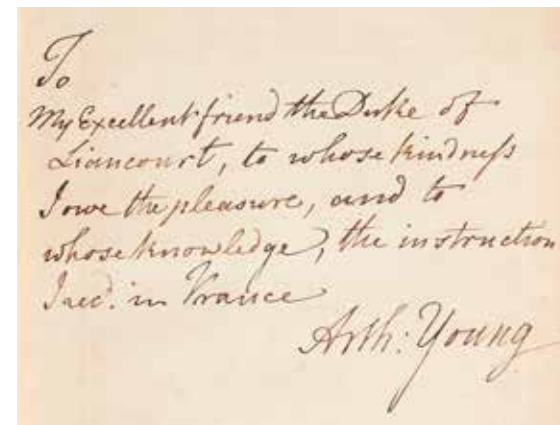 To
My Excellent friend the Duke of
Liancourt, to whose kindness
I owe the pleasure, and to
whose knowledge, the instruction
I recd. in France
Arth: Young